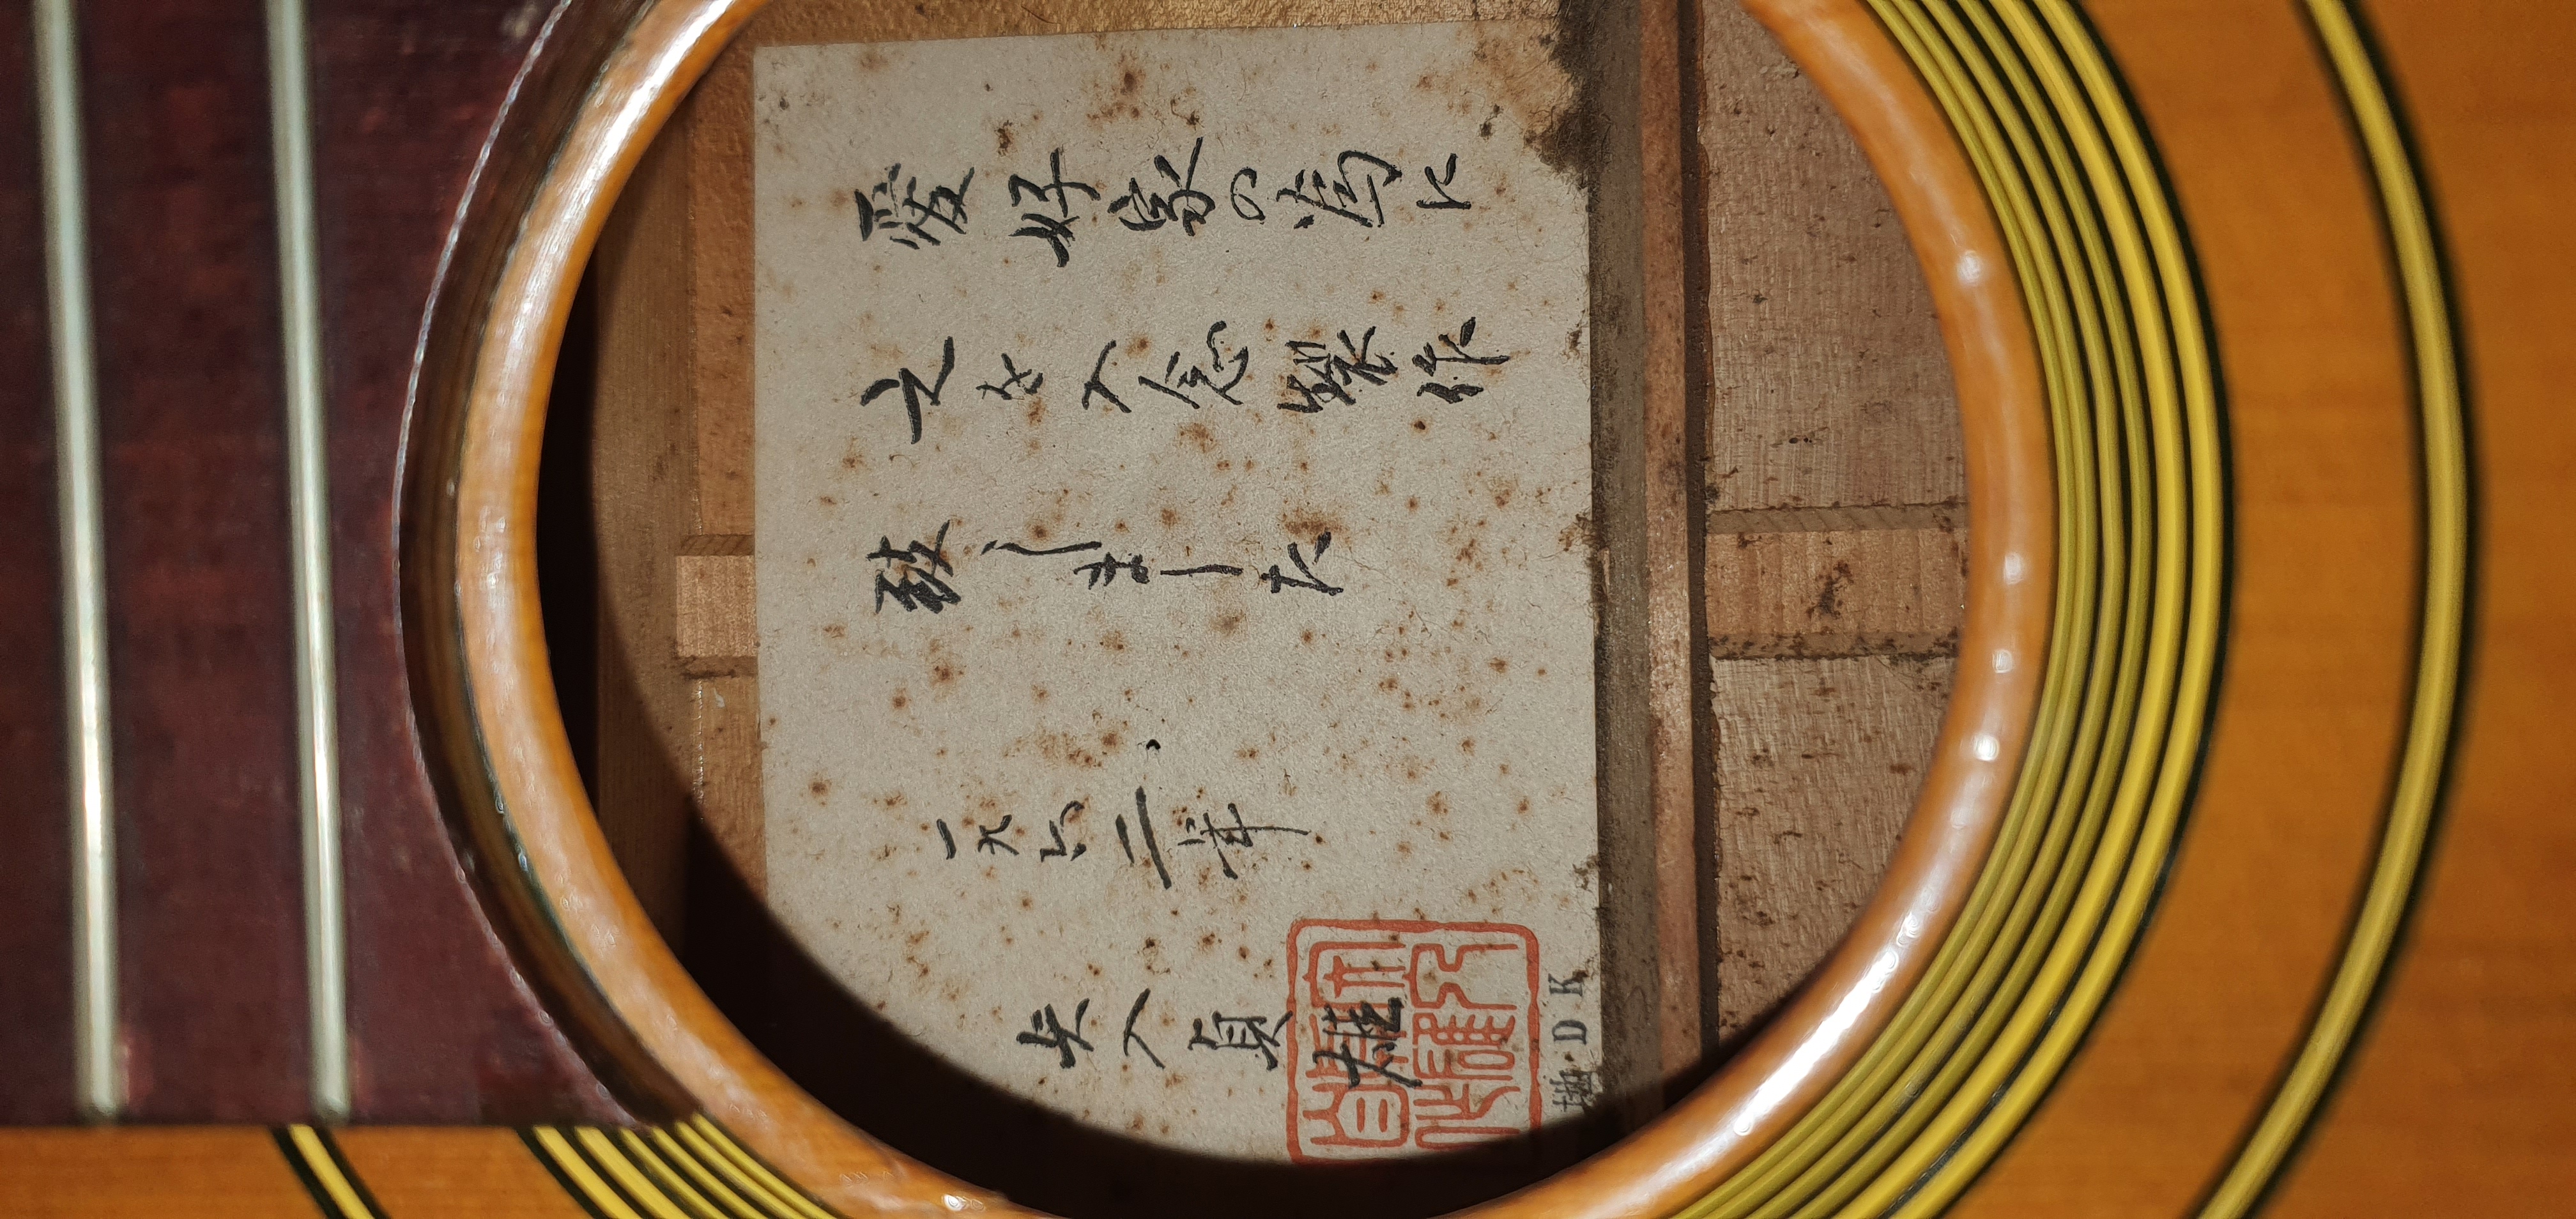 愛好家の為に
之を入念製作
致しました
一九六二年
矢入貞雄
D K